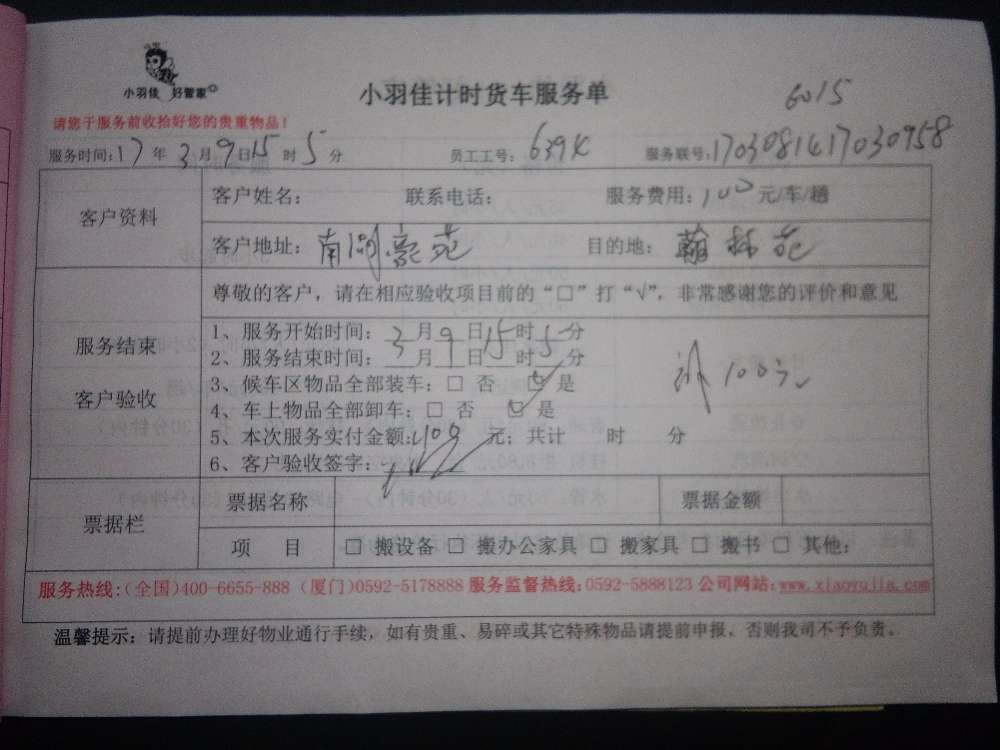 小羽佳 好管家
小羽佳计时货车服务单
6015
请您于服务前收拾好您的贵重物品！
服务时间：17年3月9日15时5分 员工工号：639K 服务联号：1703081417030958
客户资料
客户姓名： 联系电话： 服务费用：100元/车/趟
客户地址：南湖豪苑 目的地：翰林苑
服务结束
客户验收
尊敬的客户，请在相应验收项目前的“□”打“√”，非常感谢您的评价和意见
1、服务开始时间：3月9日15时5分
2、服务结束时间：3月 9日15时5分
3、候车区物品全部装车：□ 否 ☑ 是
4、车上物品全部卸车：□ 否 ☑ 是
5、本次服务实付金额：100元；共计 时 分
6、客户验收签字：
100元
票据栏
票据名称 票据金额
项 目 □ 搬设备 □ 搬办公家具 □ 搬家具 □ 搬书 □ 其他：
服务热线：(全国)400-6655-888 (厦门)0592-5178888 服务监督热线：0592-5888123 公司网站：www.xiaoyujia.com
温馨提示：请提前办理好物业通行手续，如有贵重、易碎或其它特殊物品请提前申报，否则我司不予负责。